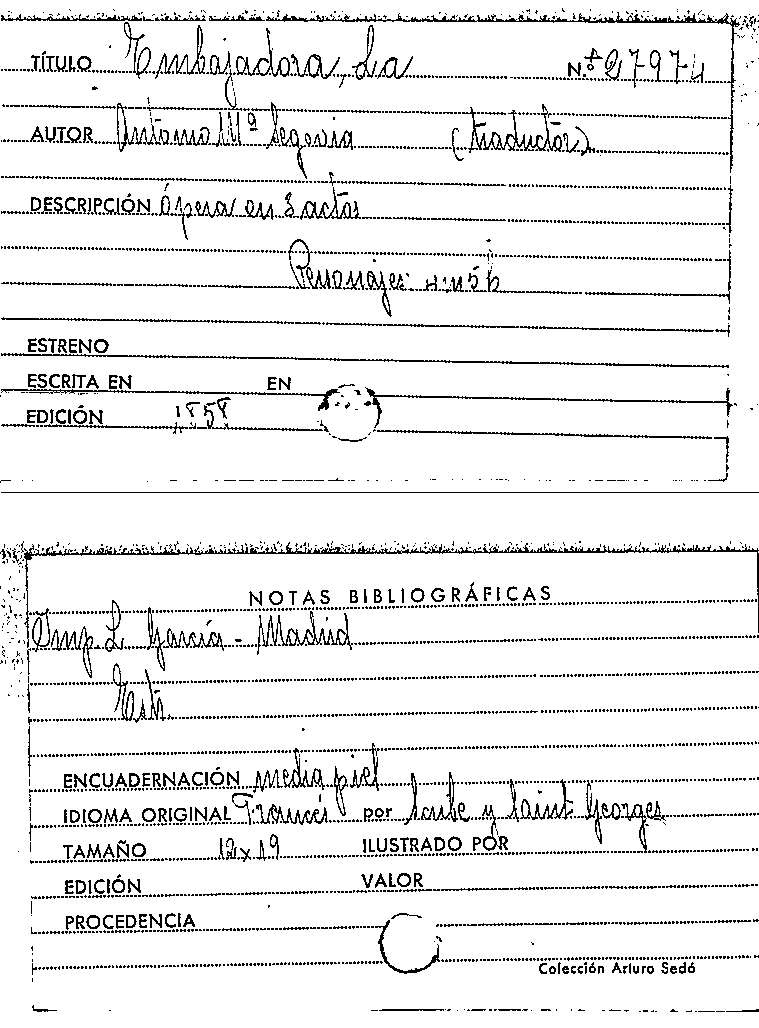 TÍTULO Embajadora, La N.º 27974
AUTOR Antonio Mª Segovia (traductor)
DESCRIPCIÓN Ópera en 3 actos
Personajes: 4 m 5 h
ESTRENO
ESCRITA EN EN
EDICIÓN 1858
NOTAS BIBLIOGRÁFICAS
Imp. L. García - Madrid
Estr.
ENCUADERNACIÓN media piel
IDIOMA ORIGINAL Francés por Scribe y Saint Georges
TAMAÑO 12x19 ILUSTRADO POR
EDICIÓN VALOR
PROCEDENCIA
Colección Arturo Sedó